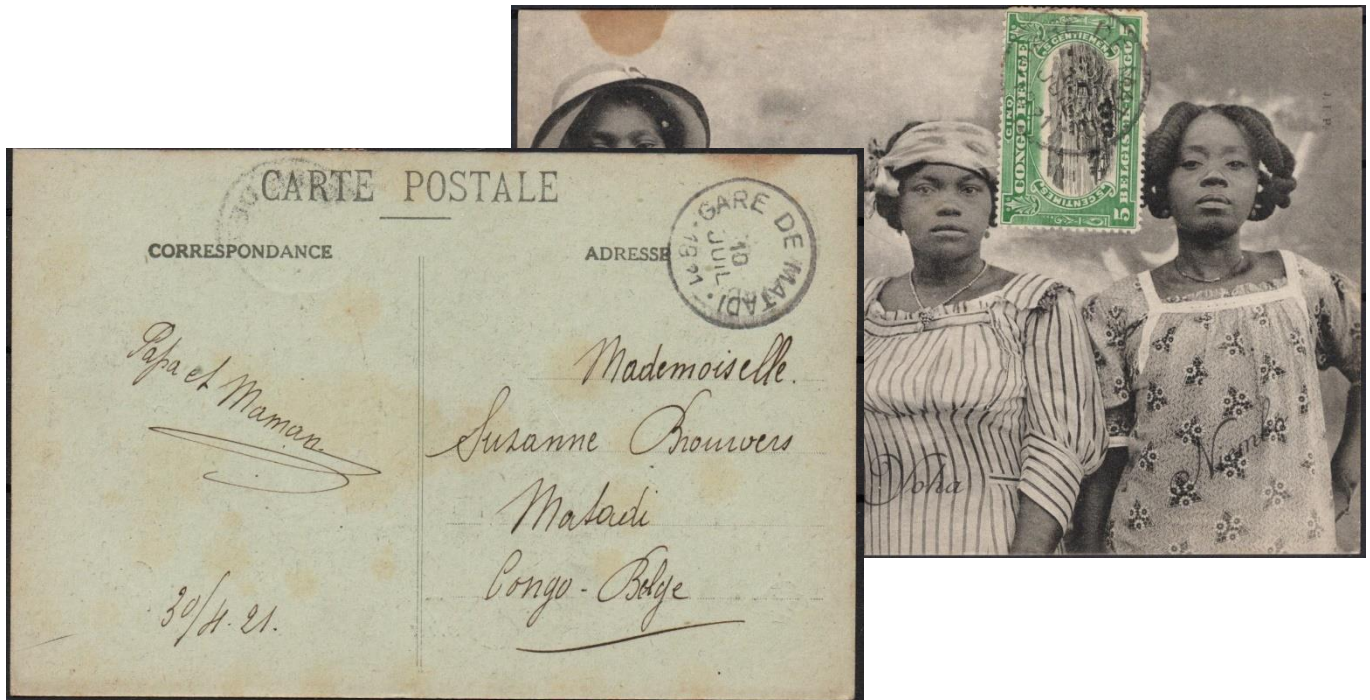 CARTE POSTALE
CORRESPONDANCE
ADRESSE
GARE DE MATADI
10
JUIL
1921
Papa et Maman
30/4.21.
Mademoiselle.
Suzanne Brouwers
Matadi
Congo-Belge
5 CENTIEMEN 5
CONGO BELGE
(CINQ)
BELGISCH-CONGO
5 CENTIMES 5
Yoha
Niumba